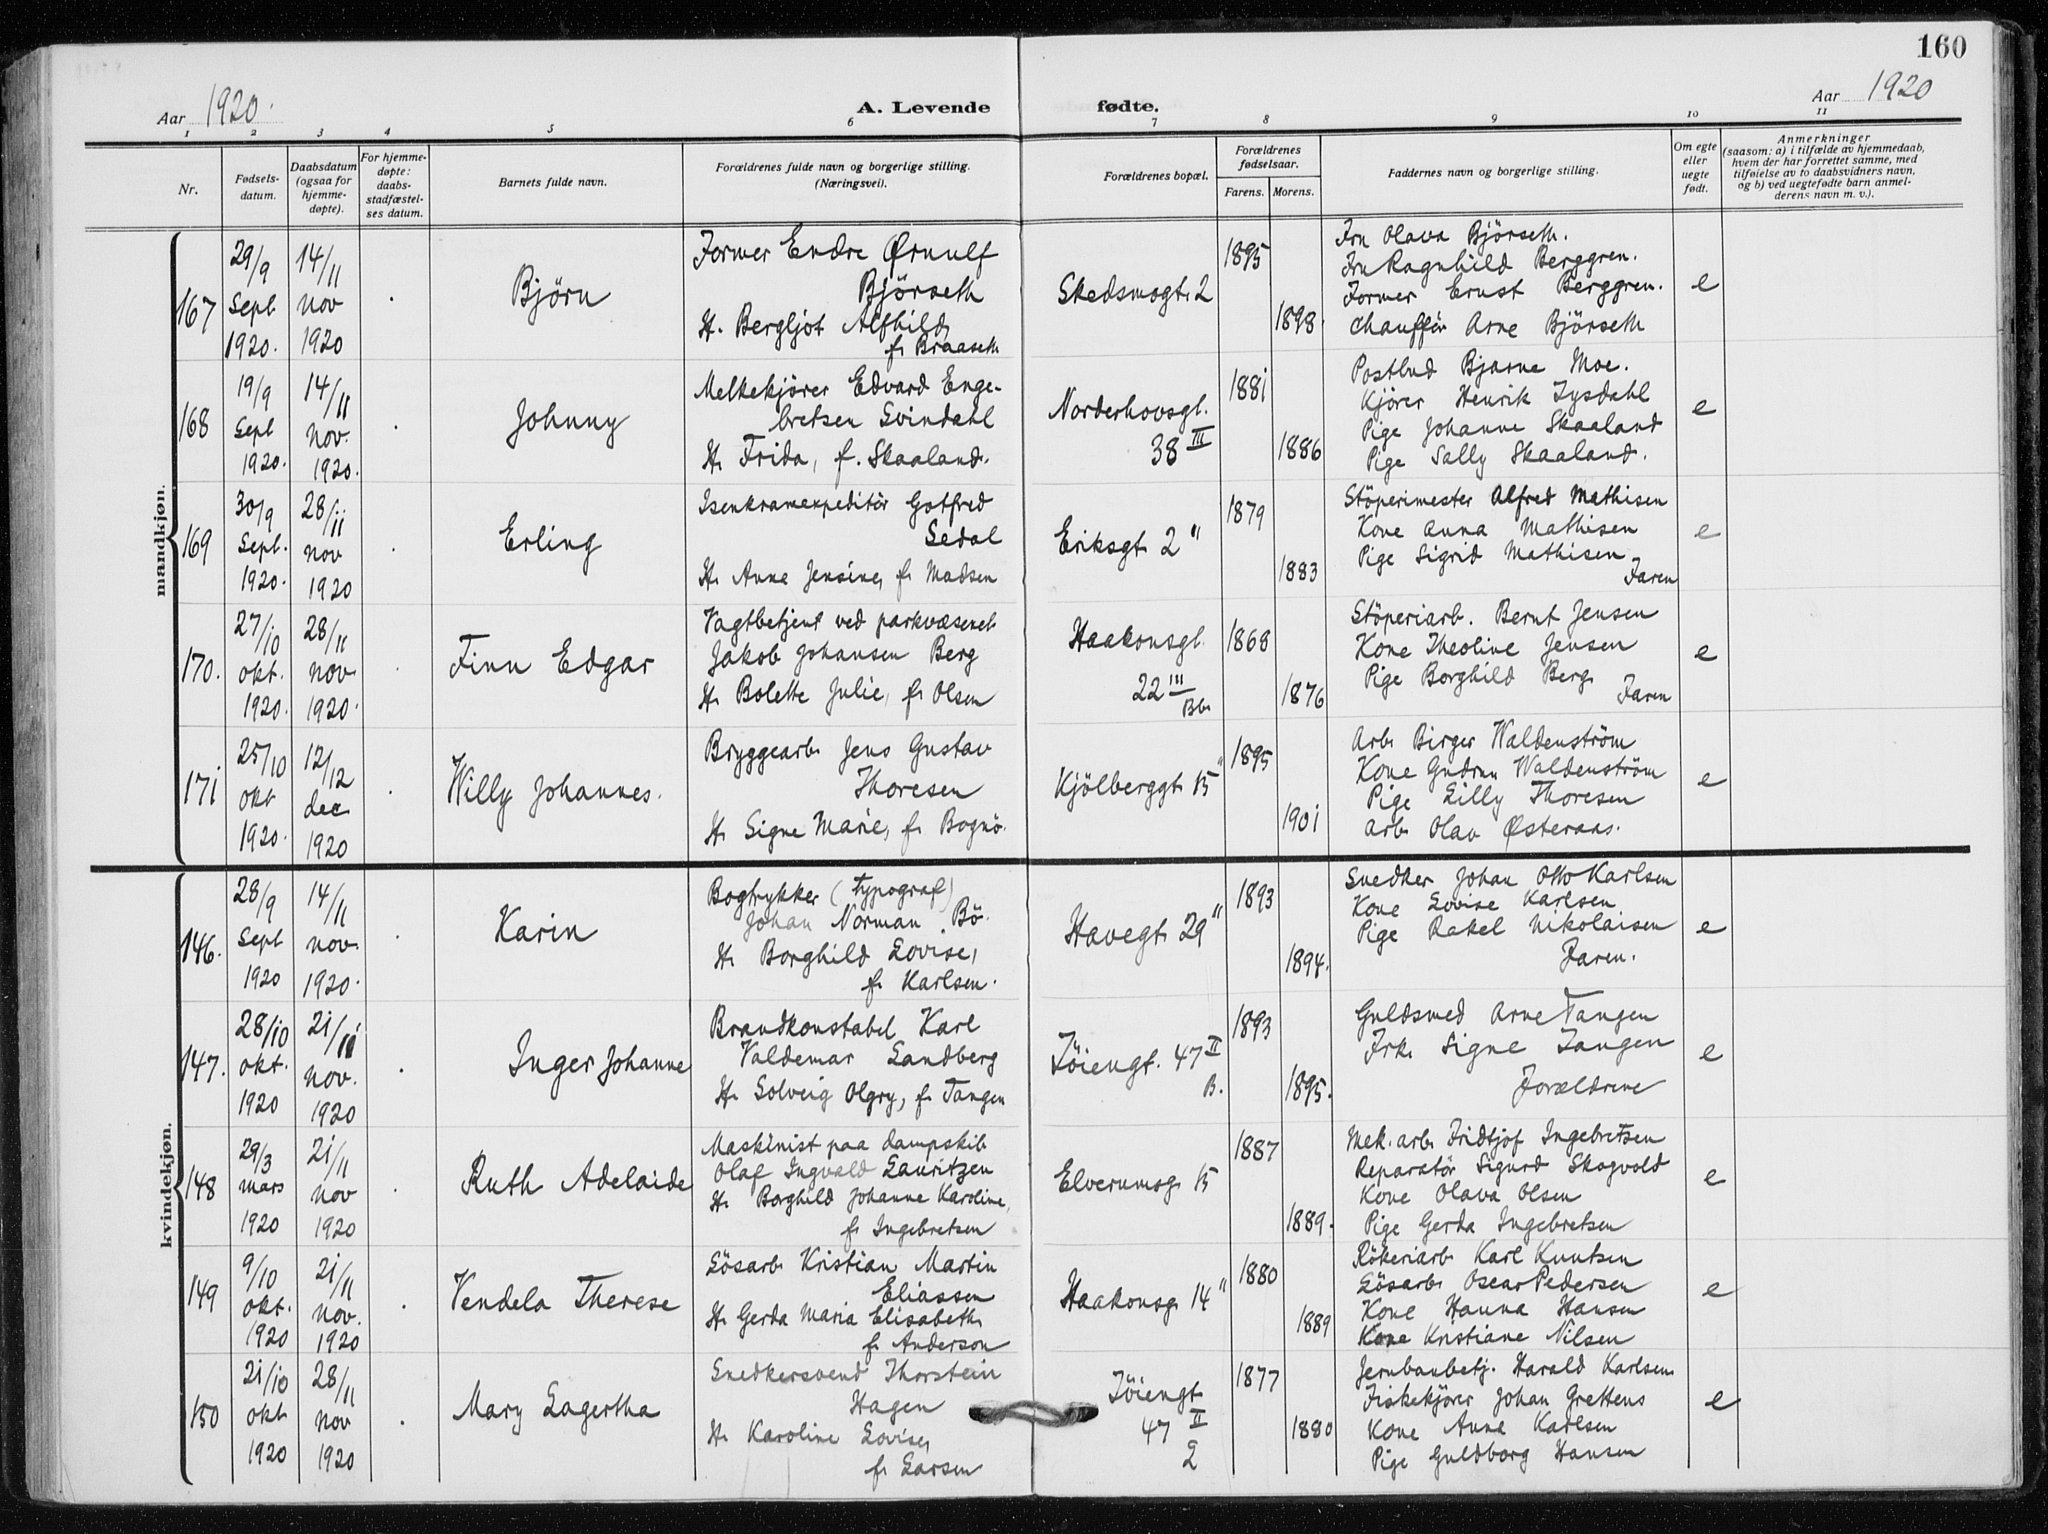 160
Aar 1920.
A. Levende fødte.
Aar 1920
1 2 3 4 5 6 7 8 9 10 11
Nr.
Fødsels-
datum.
Daabsdatum
(ogsaa for
hjemme-
døpte).
For hjemme-
døpte:
daabs-
stadfæstel-
ses datum.
Barnets fulde navn.
Forældrenes fulde navn og borgerlige stilling.
(Næringsvei).
Forældrenes bopæl.
Forældrenes
fødselsaar.
Farens. Morens.
Faddernes navn og borgerlige stilling.
Om egte
eller
uegte
født.
Anmerkninger
(saasom: a) i tilfælde av hjemmedaab,
hvem der har forrettet samme, med
tilføielse av to daabsvidners navn,
og b) ved uegtefødte barn anmel-
derens navn m. v.).
mandkjøn.
167
29/9
Sept
1920.
14/11
nov
1920
Björn
Former Endre Ørnulf
Björseth
H. Bergljot Alfhild,
f. Braaseth
Skedsmogt. 2
1895
1898.
Fru Olava Björseth.
Fru Ragnhild Berggren.
Former Ernst Berggren.
Chaufför Arne Björseth
e
168
19/9
Sept
1920.
14/11
nov.
1920.
Johnny
Melkekjörer Edvard Enge-
bretsen Svindahl
H. Frida, f. Skaaland.
Norderhovsgt.
38 III
1881
1886
Postbud Bjarne Moe.
Kjörer Henrik Tysdahl
Pige Johanne Skaaland
Pige Sally Skaaland.
e
169
30/9
Sept.
1920.
28/11
nov
1920
Erling
Isenkramexpeditör Gotfred
Sedal
H. Anna Jensine, f. Madsen
Eriksgt. 2 II
1879
1883
Stöperimester Alfred Mathisen
Kone Anna Mathisen
Pige Sigrid Mathisen
Faren
e
170.
27/10
okt.
1920.
28/11
nov.
1920.
Finn Edgar
Vagtbetjent ved parkvæsenet
Jakob Johansen Berg
H. Bolette Julie, f. Olsen
Haakonsgt.
22 III
Bb.
1868
1876
Stöperiarb. Bernt Jensen
Kone Theoline Jensen
Pige Borghild Berg
Faren
e
171
25/10
okt
1920.
12/12
dec
1920
Willy Johannes.
Bryggearb. Jens Gustav
Thoresen
H. Signe Marie, f. Bognö.
Kjölberggt. 15 II
1895
1901
Arb. Birger Waldenström
Kone Gudrun Waldenström
Pige Lilly Thoresen
Arb. Olav Østeraas.
e
kvindekjøn.
146.
28/9
Sept
1920
14/11
nov.
1920.
Karin
Bogtrykker (Typograf)
Johan Norman Bö.
H. Borghild Lovise,
f. Karlsen.
Havegt. 29 II
1893
1894.
Snedker Johan Otto Karlsen
Kone Lovise Karlsen
Pige Rakel Nikolaisen
Faren.
e
147.
28/10
okt.
1920
21/11
nov.
1920
Inger Johanne
Brandkonstabel Karl
Valdemar Sandberg
H. Solveig Olgry, f. Tangen
Töiengt. 47 II
B.
1893
1895.
Guldsmed Arne Tangen
Frk. Signe Tangen
Forældrene
e
148
29/3
mars
1920
21/11
nov
1920
Ruth Adelaide
Maskinist paa dampskib
Olaf Ingvald Lauritzen
H. Borghild Johanne Karoline,
f. Ingebretsen
Elverumsg. 15
1887
1889.
Mek. arb. Fridtjof Ingebretsen
Reparatör Sigurd Skogvold
Kone Olava Olsen
Pige Gerda Ingebretsen
e
149
9/10
okt.
1920
21/11
nov.
1920
Vendela Therese
Lösarb. Kristian Martin
Eliassen
H. Gerda Maria Elisabeth,
f. Anderson
Haakonsg. 14 II
1880
1889
Rökeriarb. Karl Knutsen
Lösarb. Oscar Pedersen
Kone Hanna Hansen
Kone Kristiane Nilsen
e
150
21/10
okt
1920
28/11
nov
1920
Mary Lagertha
Snedkersvend Thorstein
Hagen
H. Karoline Lovise,
f. Larsen
Töiengt.
47 II
2
1877
1880
Jernbanbetj. Harald Karlsen
Fiskekjörer Johan Grettens
Kone Anna Karlsen
Pige Guldborg Hansen
e